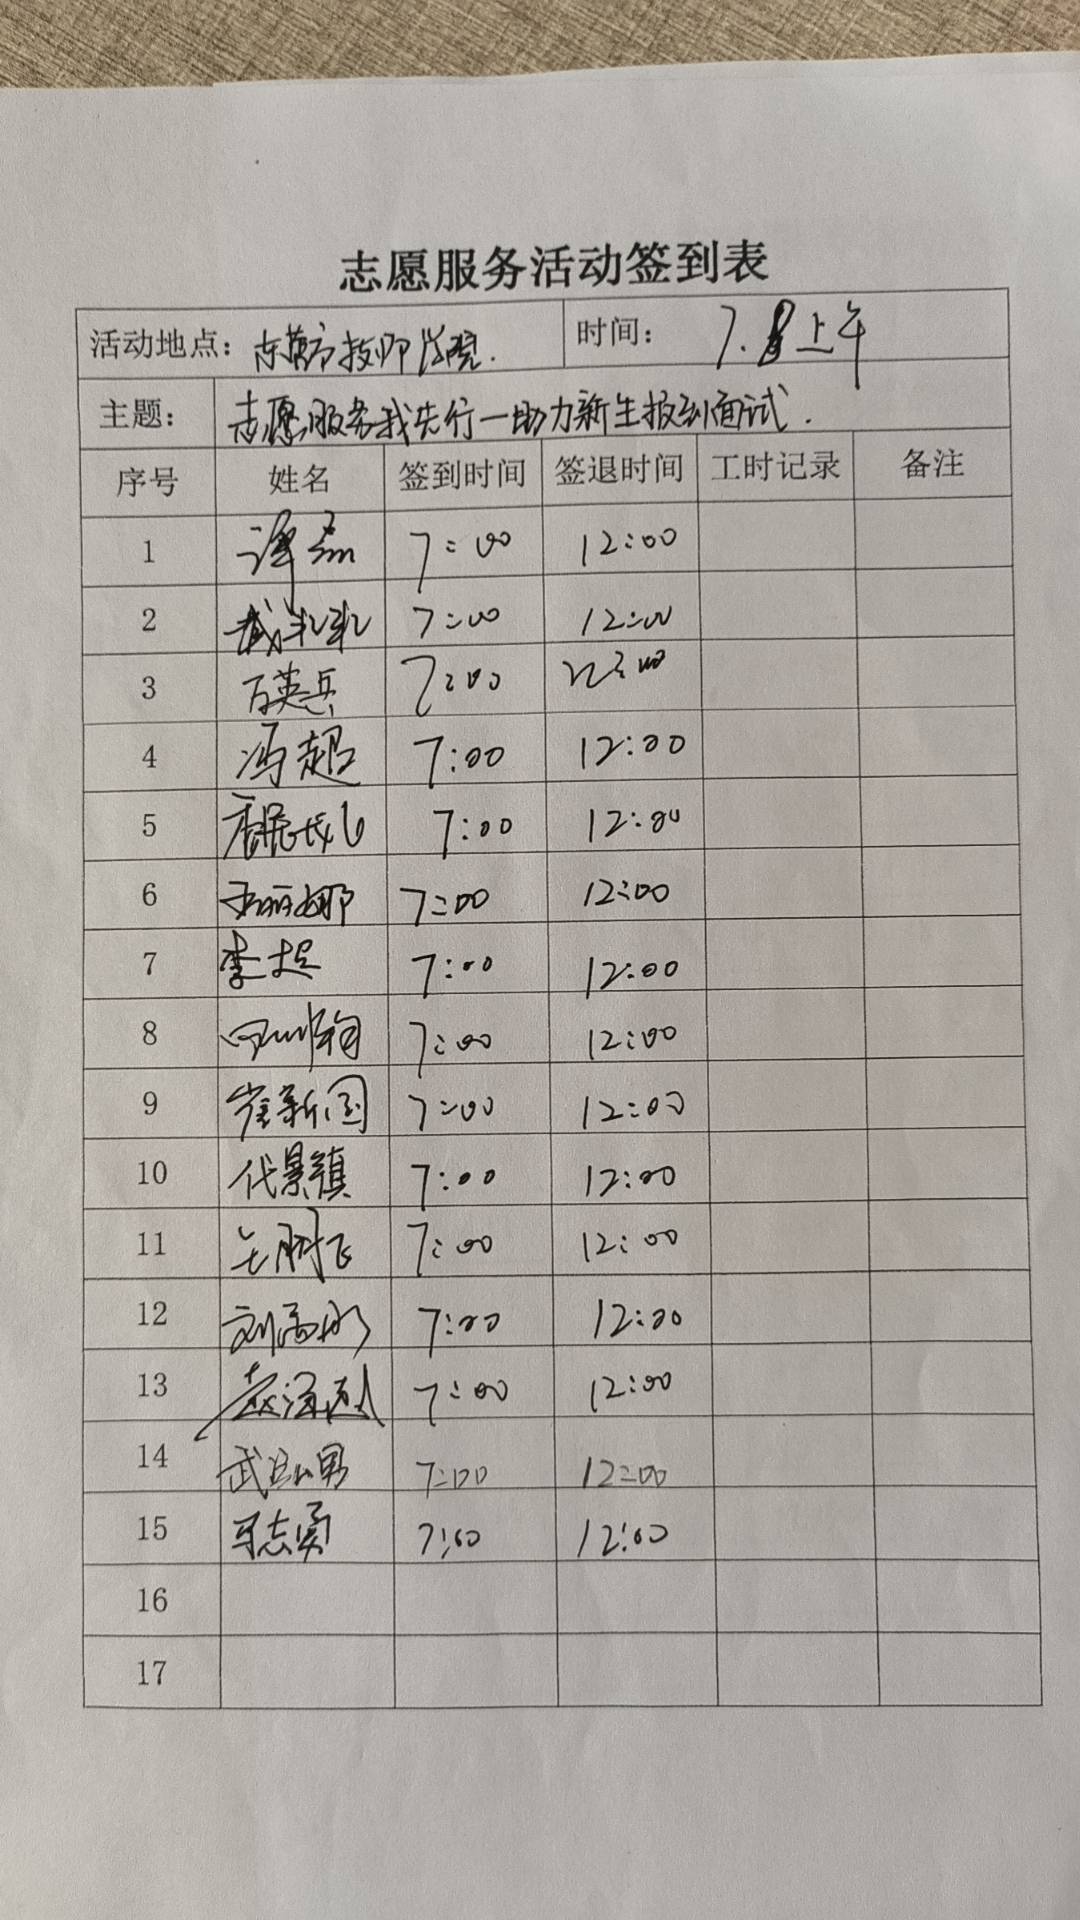 志愿服务活动签到表
活动地点：东营市技师学院. 时间：7.8上午
主题：志愿服务我先行一助力新生报到面试.
序号 姓名 签到时间 签退时间 工时记录 备注
1 7:00 12:00
2 7:00 12:00
3 万英兵 7:00 12:00
4 冯超 7:00 12:00
5 7:00 12:00
6 7:00 12:00
7 李超 7:00 12:00
8 7:00 12:00
9 崔新国 7:00 12:00
10 代景镇 7:00 12:00
11 7:00 12:00
12 7:00 12:00
13 7:00 12:00
14 武 男 7:00 12:00
15 马志勇 7:00 12:00
16
17